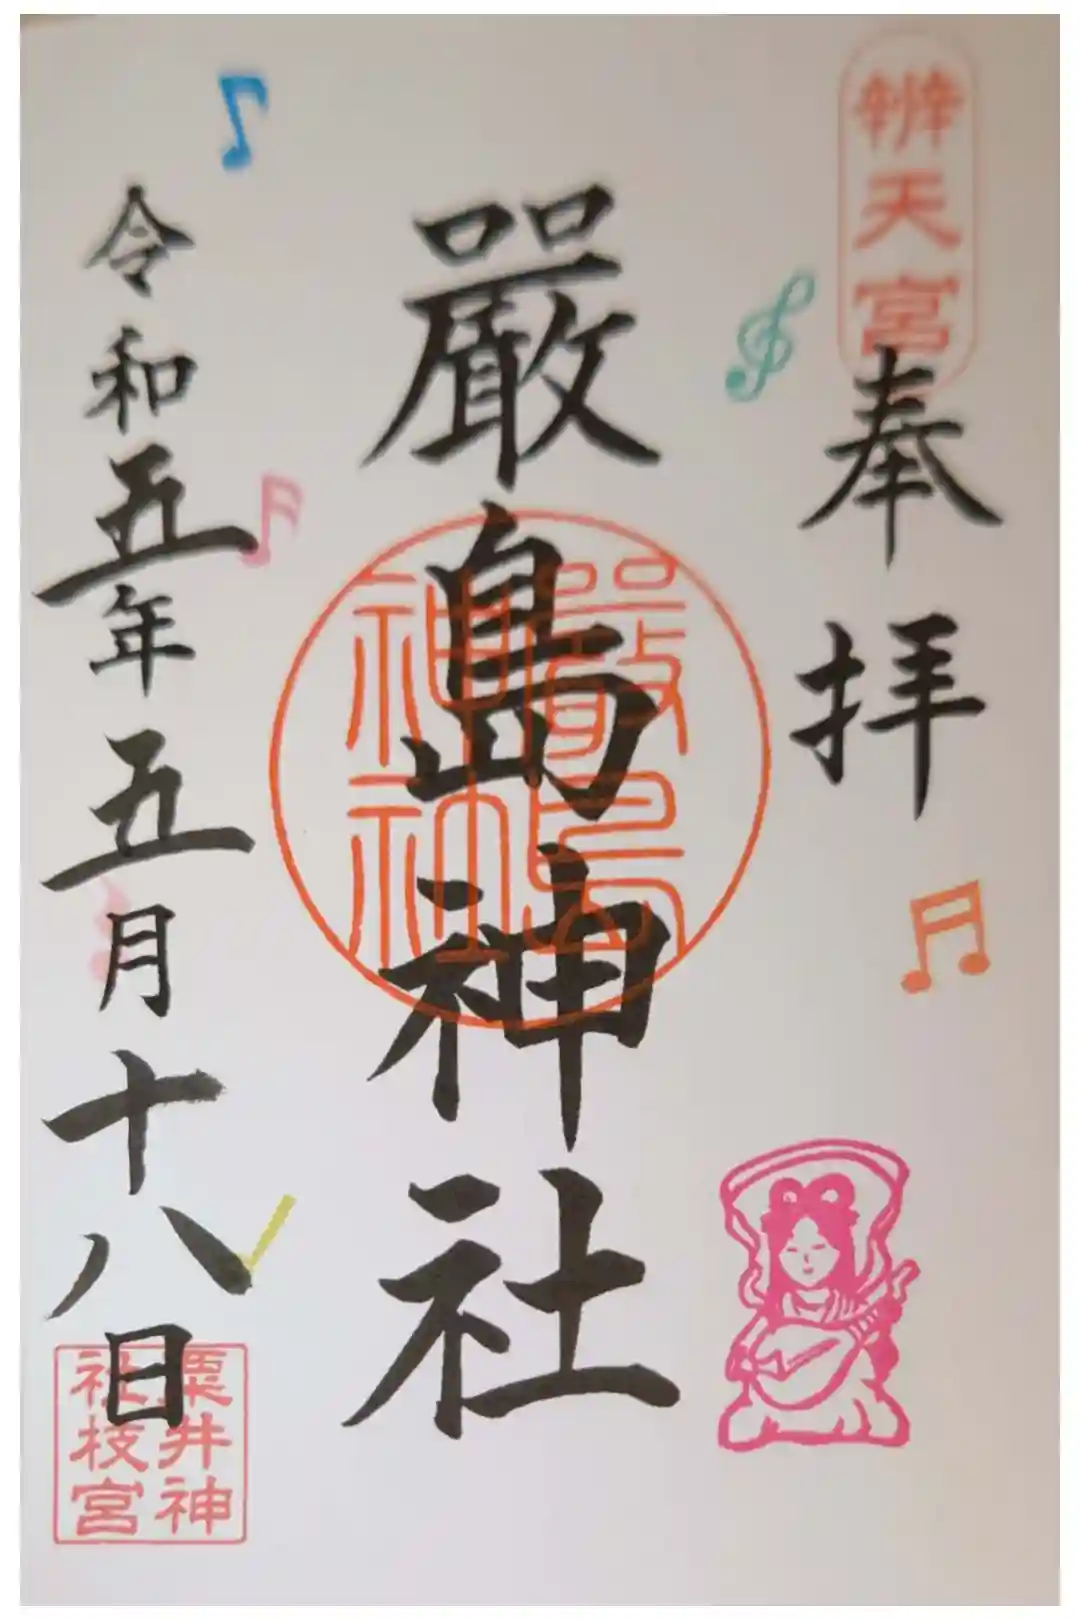 辨天宮
奉拝
嚴島神社
嚴島
神社
令和五年五月十八日
粟井神
社枝宮